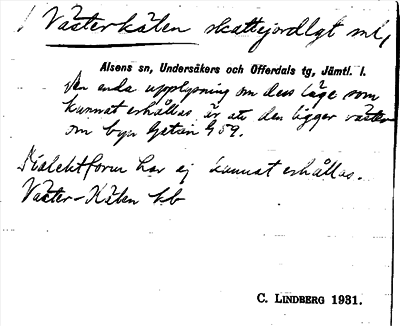 Västerkälen skattejordlgt mt,
Alsens sn, Undersåkers och Offerdals tg, Jämtl. l.
Den enda upplysning om dess läge som
kunnat erhållas är att den ligger väster
om byn Gåtän 959.
Dialektform har ej kunnat erhållas.
Väster-Kälen kb
C. LINDBERG 1931.